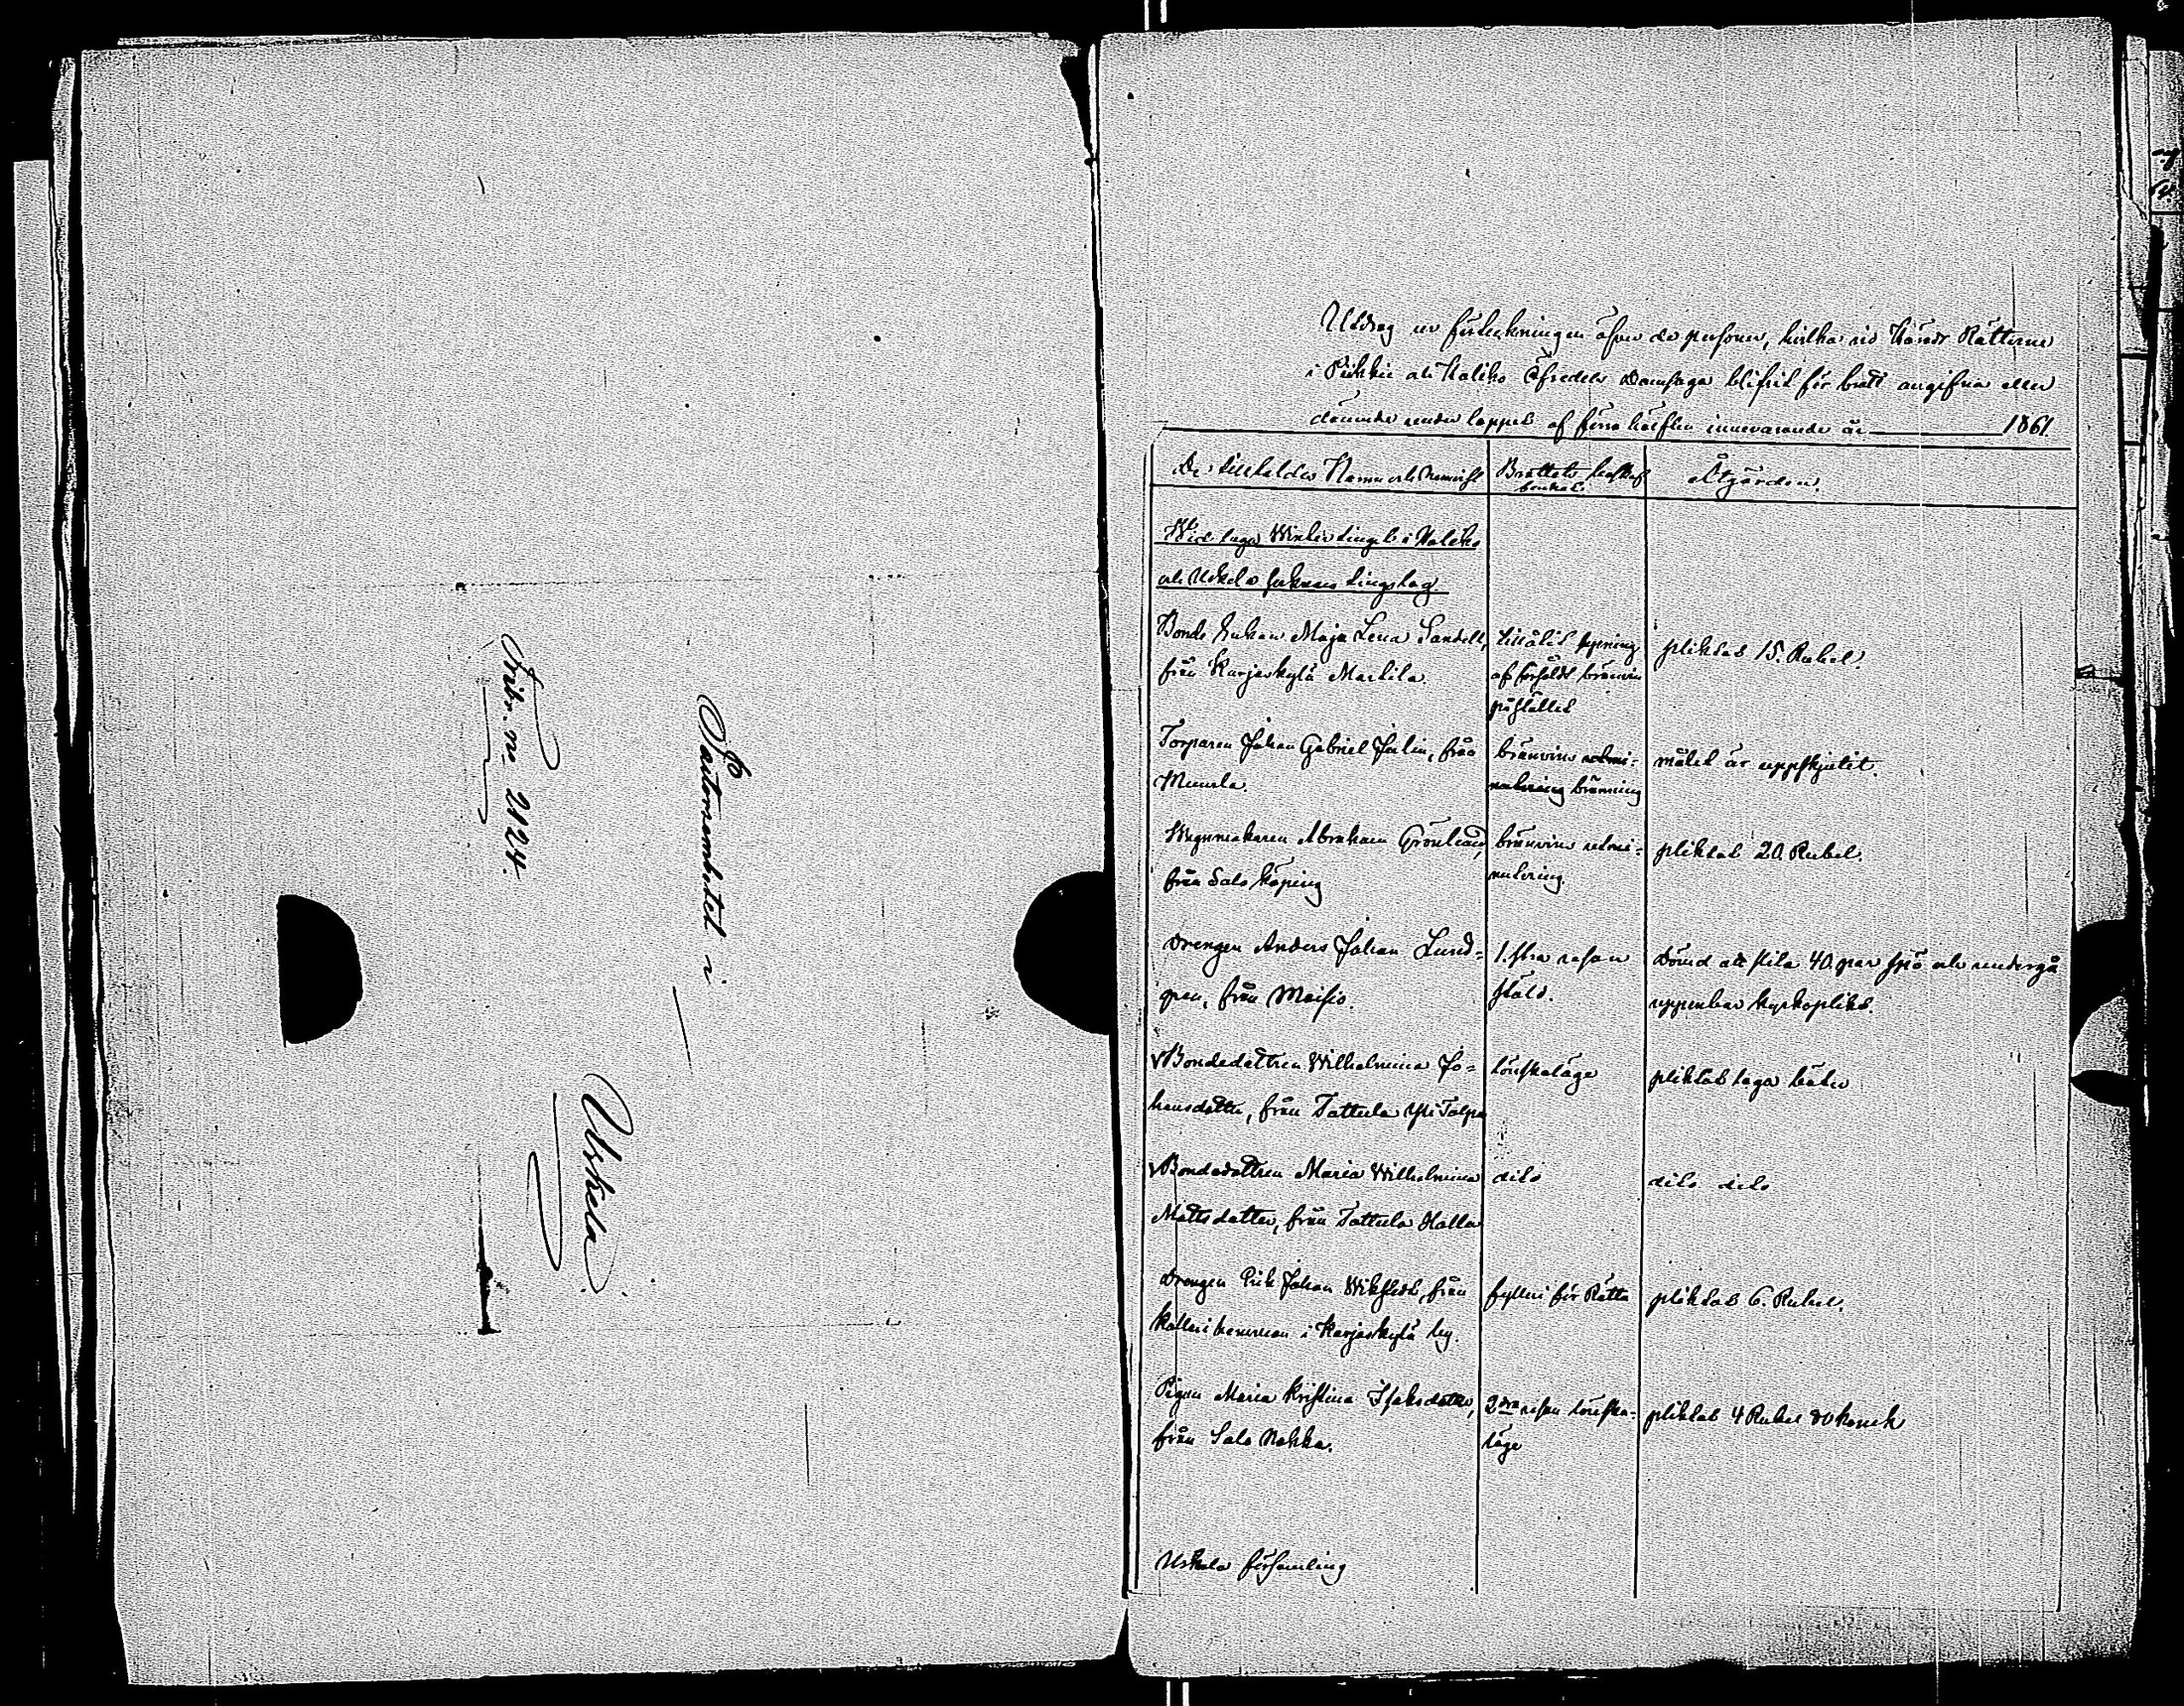 Fribr. no 2124.
Pastorsembetet i
Uskela
Utdrag ur förteckningen öfver de personer, hvilka vid Härads Rätterne
i Piikkie och Haliko Öfredels Domsaga blifvit för brott angifna eller
dömde under loppet af förra hälften innevarande år 1861.
De tilltalades Namn och hemvist
Brottets beskaffenhet
Åtgärden.
Vid laga Vintertinget i Haliko
och Uskela socknars tingslag.
Bonde Enkan Maja Lena Sandell,
från Karjaskylä Markila.
tillåtit
af bränvin
på stället
pliktat 15. Rubel.
Torparen Johan Gabriel Julin, från
Muurla.
bränvins
bränning
målet är uppskjutit.
Wagnmakaren Abraham Grönlund,
från Salo köping
bränvins utmi-
nutering.
pliktat 20. Rubel.
Drengen Anders Johan Lund-
gren, från Moisio.
1. sta resan
stöld.
Dömd att slita 40. par spö och undergå
uppenbar kyrkoplikt.
v Bondedottren Wilhelmina Jo-
hansdotter, från Tattula Yli Talpo
lönskaläge
pliktat laga böter
v Bondedottren Maria Wilhelmina
Mattsdotter, från Tattula Halla
dito
dito dito
Drengen Erik Johan Wikstedt, från
hemman i Karjaskylä by.
fylleri för Rätta
pliktat 6. Rubel.
Pigan Maria Kristina Isaksdotter,
från Salo Nokka.
2dra resan lönska-
läge
pliktat 4 Rubel 80 kopek
Uskela församling